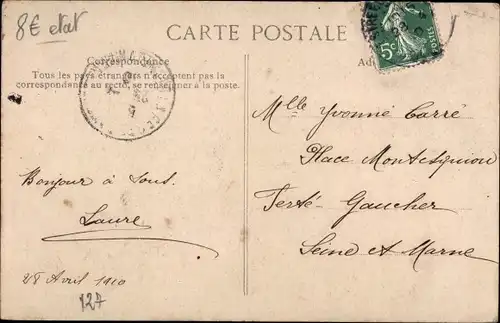 8€ etat
CARTE POSTALE
Correspondance
Tous les pays étrangers n'acceptent pas la
correspondance au recto, se renseigner à la poste.
5c
Mlle Yvonne Carré
Place Montesquiou
Ferté Gaucher
Seine et Marne
Bonjour à tous.
Laure
28 Avril 1910
127